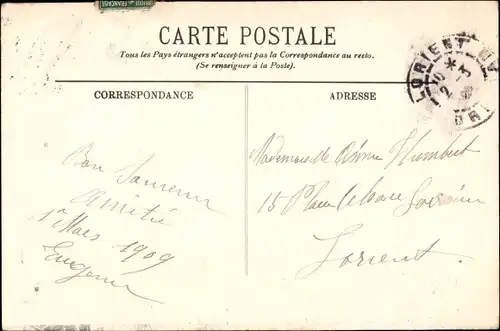 CARTE POSTALE
Tous les Pays étrangers n'acceptent pas la Correspondance au recto.
(Se renseigner à la Poste).
CORRESPONDANCE
ADRESSE
LORIENT
Bon Souvenir
Amitié
1er Mars 1909
Mademoiselle Humbert
15 Place
Lorient